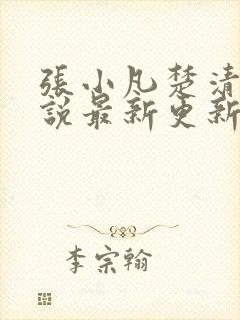 張小凡楚清
說最新更新
李宗翰